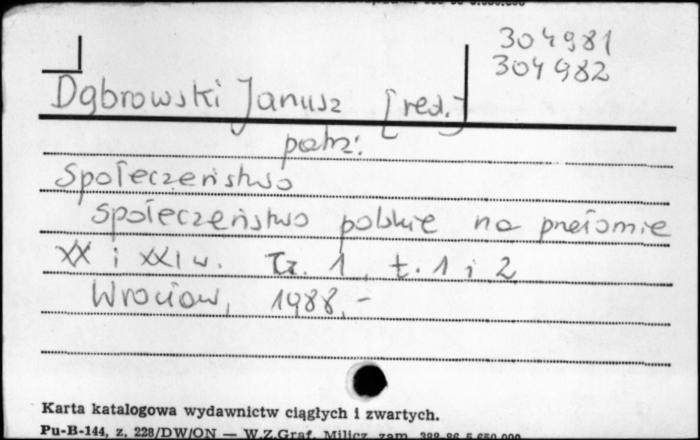 304981
304982
Dąbrowski Janusz [red.]
patrz:
Społeczeństwo
Społeczeństwo polskie na przełomie
XX i XXI w. Cz. 1, t. 1 i 2
Wrocław, 1988,-
Karta katalogowa wydawnictw ciągłych i zwartych.
Pu-B-144, z. 228/DW/ON — W.Z.Graf. Milicz, zam. 388-86 5.650.000